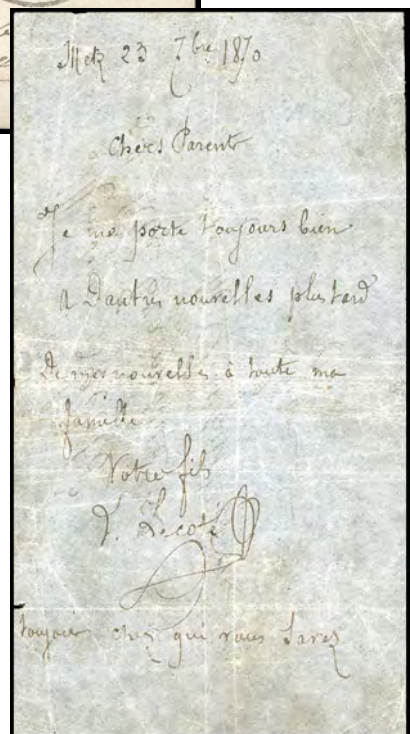 Metz 23 7bre 1870
Chers Parent
Je me porte toujours bien
a Dautres nouvelles plus tard
De mes nouvelles à toute ma
famille
Votre fils
V. Lecoté
toujours chez qui vous savez